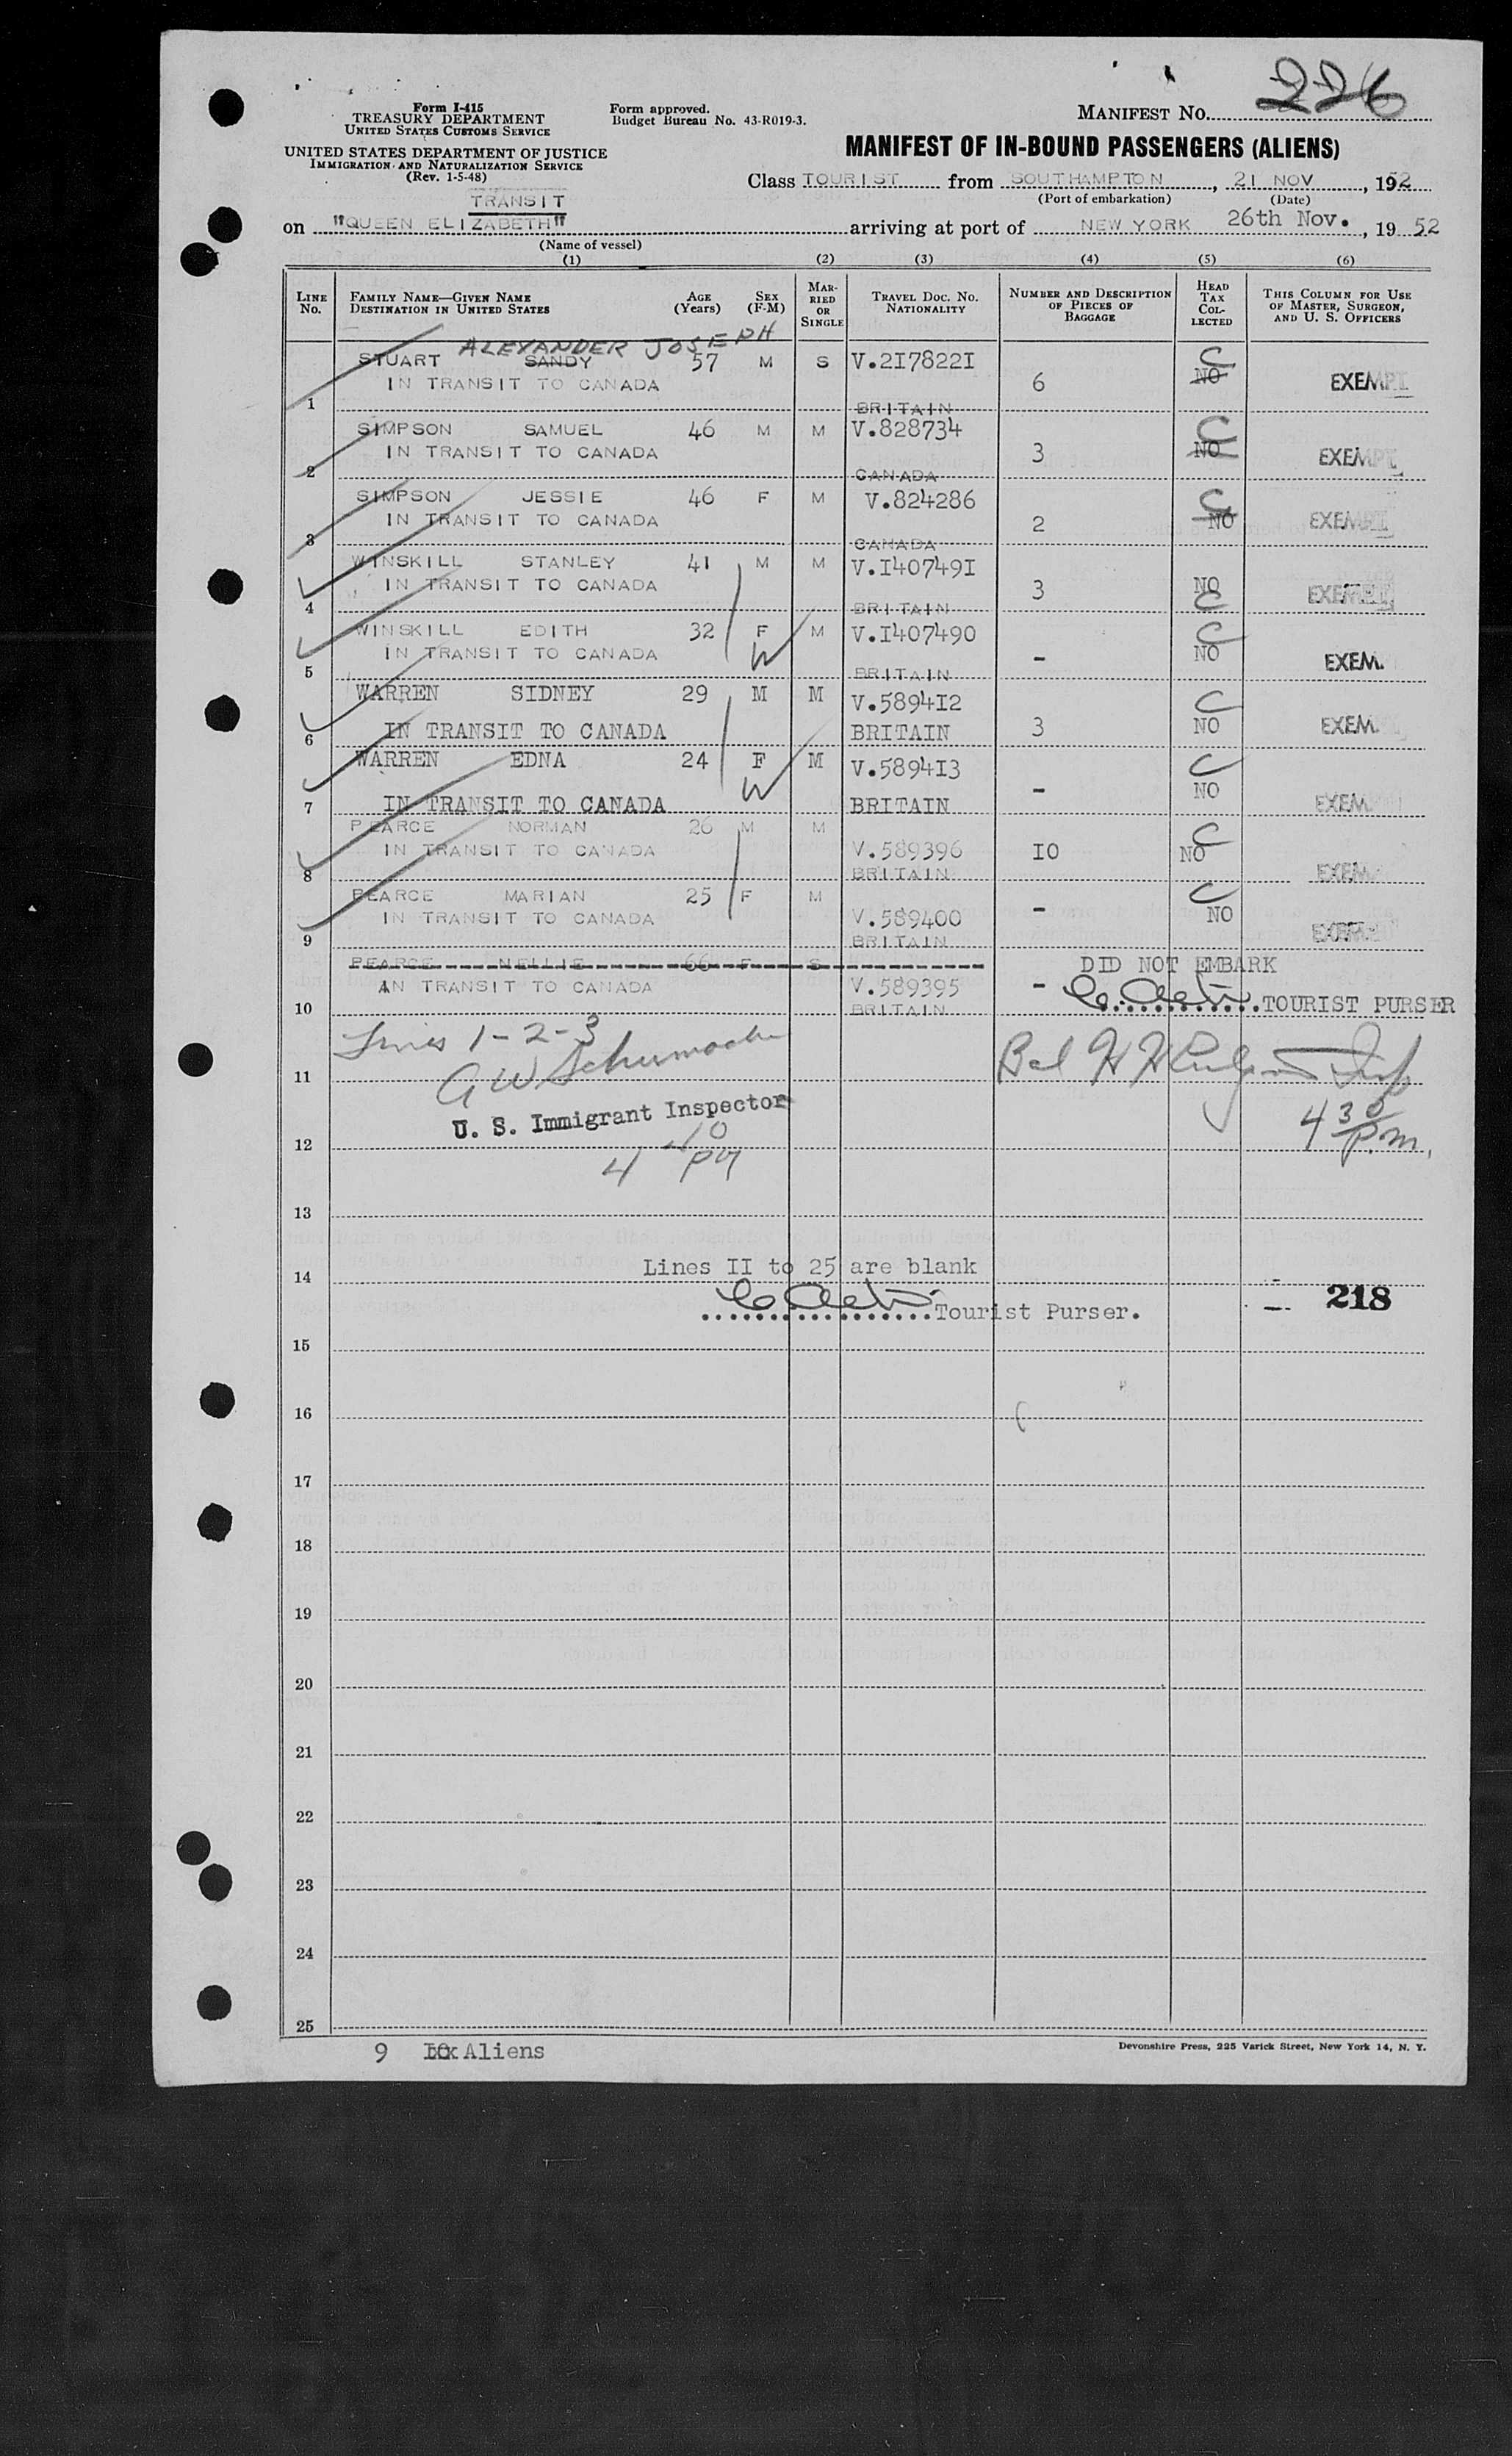 Form I-415
TREASURY DEPARTMENT
UNITED STATES CUSTOMS SERVICE
UNITED STATES DEPARTMENT OF JUSTICE
IMMIGRATION AND NATURALIZATION SERVICE
(Rev. 1-5-48)
Form approved.
Budget Bureau No. 43-R019-3.
MANIFEST No. 226
MANIFEST OF IN-BOUND PASSENGERS (ALIENS)
Class TOURIST from SOUTHAMPTON, 21 NOV, 1952
(Port of embarkation) (Date)
TRANSIT
on "QUEEN ELIZABETH" arriving at port of NEW YORK 26th Nov., 1952
(Name of vessel)
(1) (2) (3) (4) (5) (6)
LINE No. FAMILY NAME—GIVEN NAME DESTINATION IN UNITED STATES AGE (Years) SEX (F-M) MARRIED OR SINGLE TRAVEL DOC. No. NATIONALITY NUMBER AND DESCRIPTION OF PIECES OF BAGGAGE HEAD TAX COLLECTED THIS COLUMN FOR USE OF MASTER, SURGEON, AND U. S. OFFICERS
ALEXANDER JOSEPH
STUART SANDY 57 M S V.2178221 C
IN TRANSIT TO CANADA 6 NO EXEMPT
1 BRITAIN
SIMPSON SAMUEL 46 M M V.828734 C
IN TRANSIT TO CANADA 3 NO EXEMPT
2 CANADA
SIMPSON JESSIE 46 F M V.824286 C
IN TRANSIT TO CANADA 2 NO EXEMPT
3 CANADA
WINSKILL STANLEY 41 M M V.I407491
IN TRANSIT TO CANADA 3 NO EXEMPT
4 BRITAIN C
WINSKILL EDITH 32 F M V.I407490 C
IN TRANSIT TO CANADA W - NO EXEM.
5 BRITAIN
WARREN SIDNEY 29 M M V.5894I2 C
6 IN TRANSIT TO CANADA BRITAIN 3 NO EXEM.
WARREN EDNA 24 F M V.5894I3 C
W - NO
7 IN TRANSIT TO CANADA BRITAIN EXEM
PEARCE NORMAN 26 M M C
IN TRANSIT TO CANADA V.589396 IO NO
8 BRITAIN EXEM
PEARCE MARIAN 25 F M C
IN TRANSIT TO CANADA V.589400 - NO EXEM
9 BRITAIN
PEARCE NELLIE 66 F S DID NOT EMBARK
IN TRANSIT TO CANADA V.589395 -
10 BRITAIN TOURIST PURSER
Lines 1-2-3
A W Schumacher
11
U. S. Immigrant Inspector
4 30 p.m.
12
4 10 pm
13
Lines II to 25 are blank
14
Tourist Purser.
218
15
16
17
18
19
20
21
22
23
24
25
9 Aliens
Devonshire Press, 225 Varick Street, New York 14, N. Y.